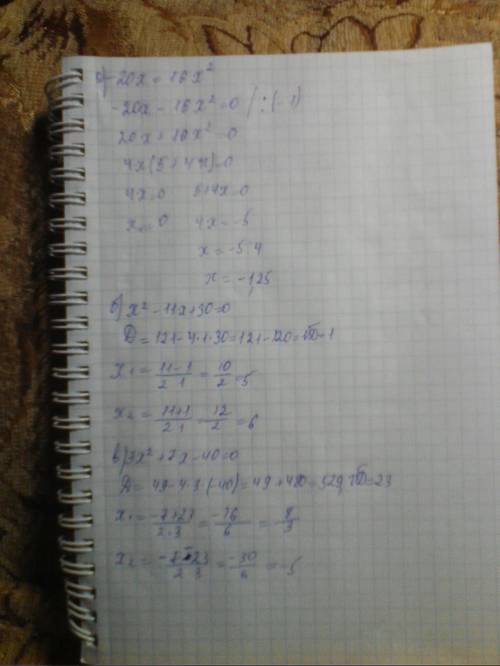 а) -20x = 16x²
-20x - 16x² = 0 / : (-1)
20x + 16x² = 0
4x(5 + 4x) = 0
4x = 0 5 + 4x = 0
x = 0 4x = -5
x = -5:4
x = -1,25
б) x² - 11x + 30 = 0
D = 121 - 4·1·30 = 121 - 120 = √D = 1
x₁ = (11-1)/(2·1) = 10/2 = 5
x₂ = (11+1)/(2·1) = 12/2 = 6
в) 3x² + 7x - 40 = 0
D = 49 - 4·3·(-40) = 49 + 480 = 529 √D = 23
x₁ = (-7+23)/(2·3) = -16/6 = 8/3
x₂ = (-7-23)/(2·3) = -30/6 = -5